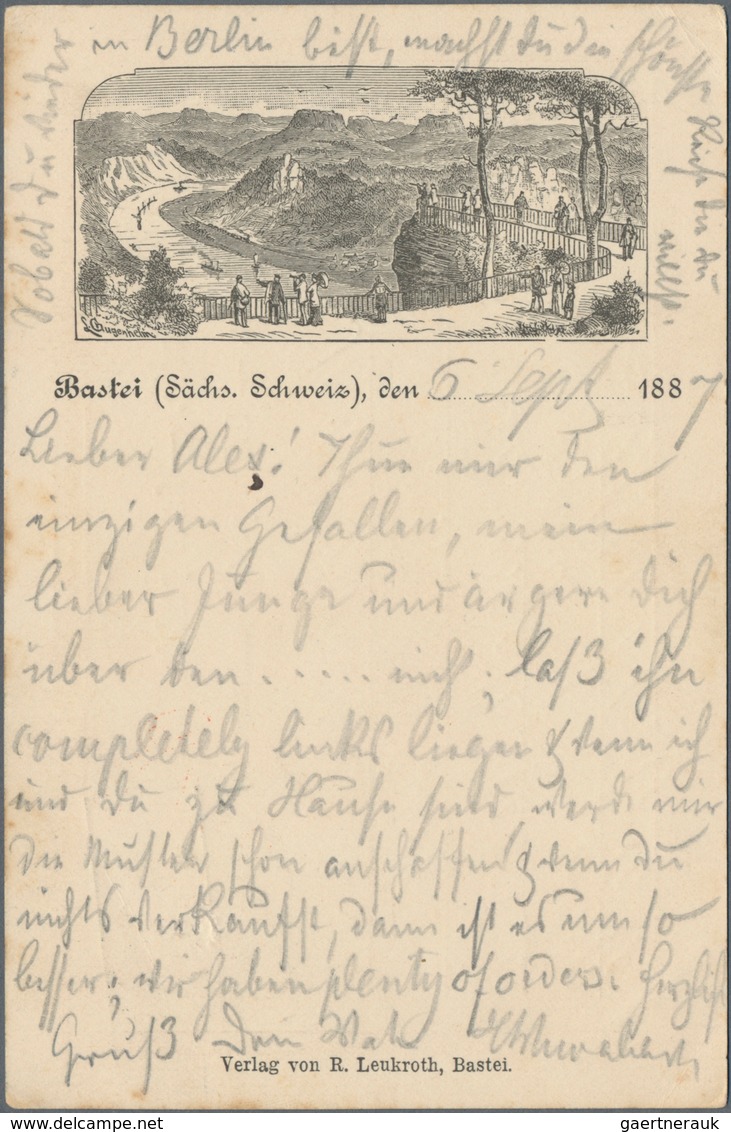 in Berlin bist, machst du die schönste
Reise die du
willst.
Sobald du wieder
L. Guggenheim
Bastei (Sächs. Schweiz), den 6 Sept 1887
Lieber Alex! Thue mir den
einzigen Gefallen, mein
lieber Junge und ärgere Dich
über den ..... nicht, laß ihn
completely links liegen & wenn ich
und du zu Hause sind werde mir
die Muster schon anschaffen & wenn du
nichts verkaufst, dann ist es um so
besser, wir haben plenty of orders. Herzlich
Gruß Dein
Verlag von R. Leukroth, Bastei.
gaertnerauk